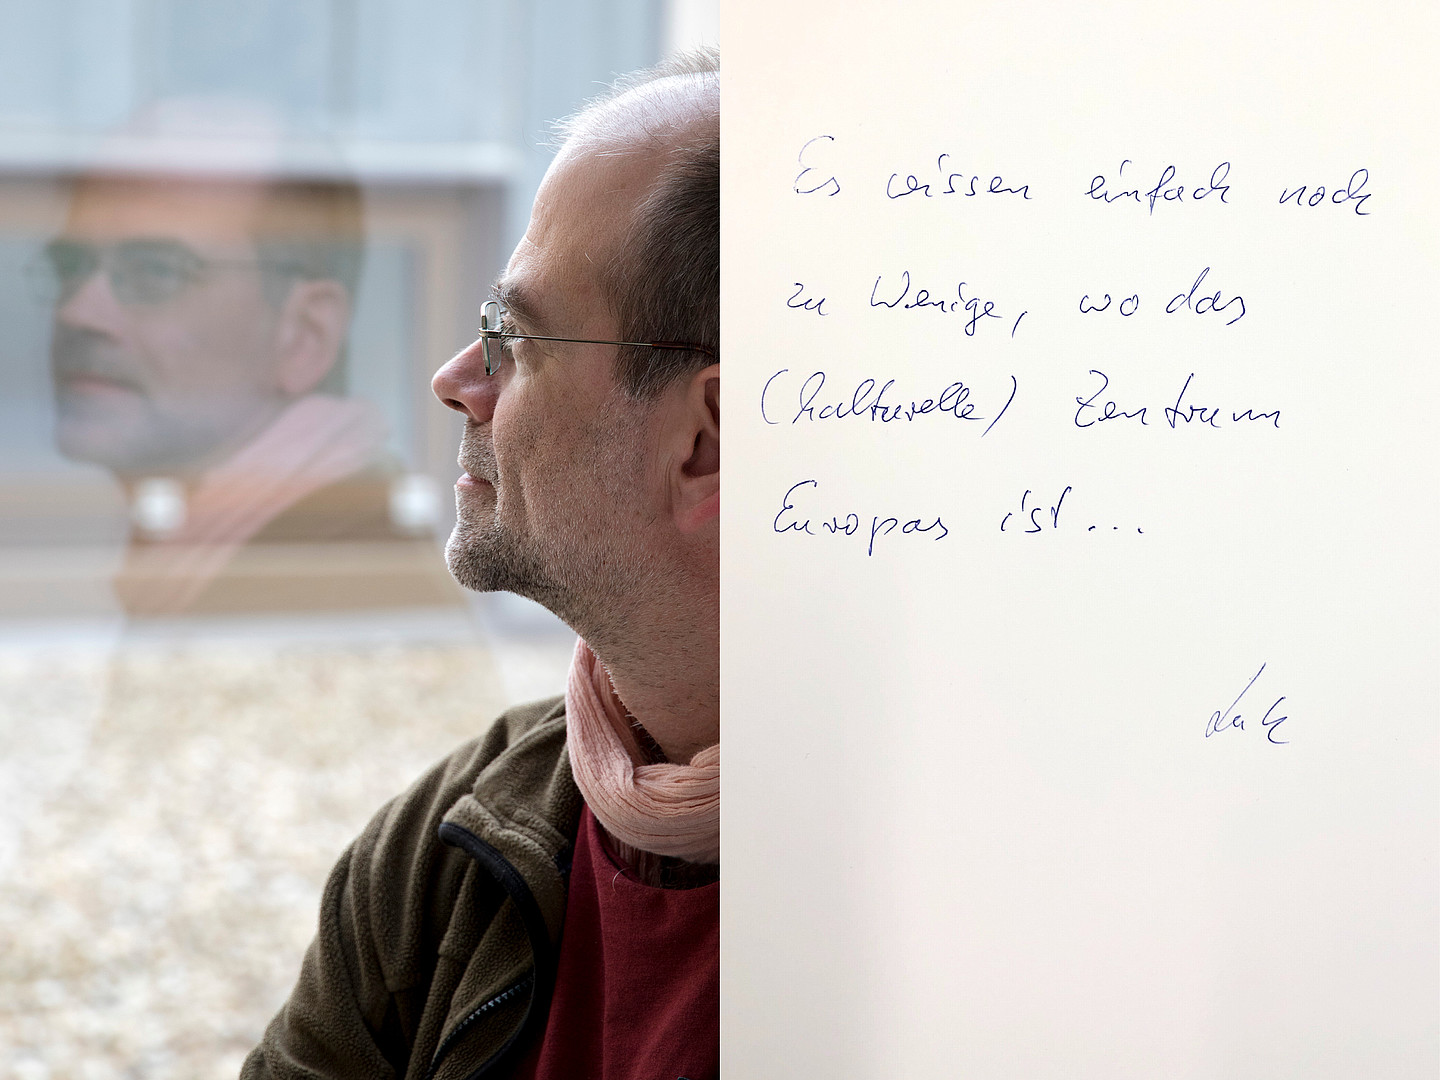 Es wissen einfach noch
zu Wenige, wo das
(kulturelle) Zentrum
Europas ist...